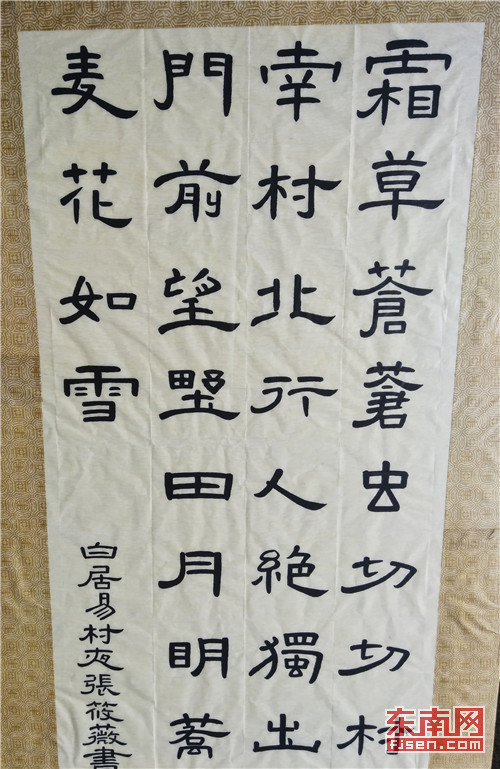 霜草蒼蒼虫切切村
幸村北行人絶獨出
門前望墅田月眀蕎
麦花如雪
白居易村夜張筱薇書
东南网
fjsen.com